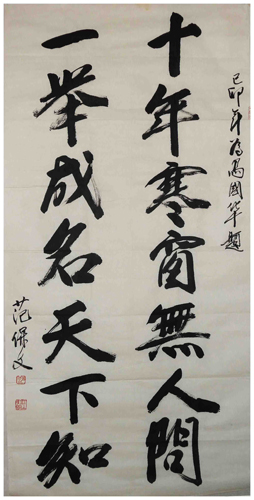 己卯年为高国华题
十年寒窗無人問
一举成名天下知
范保文